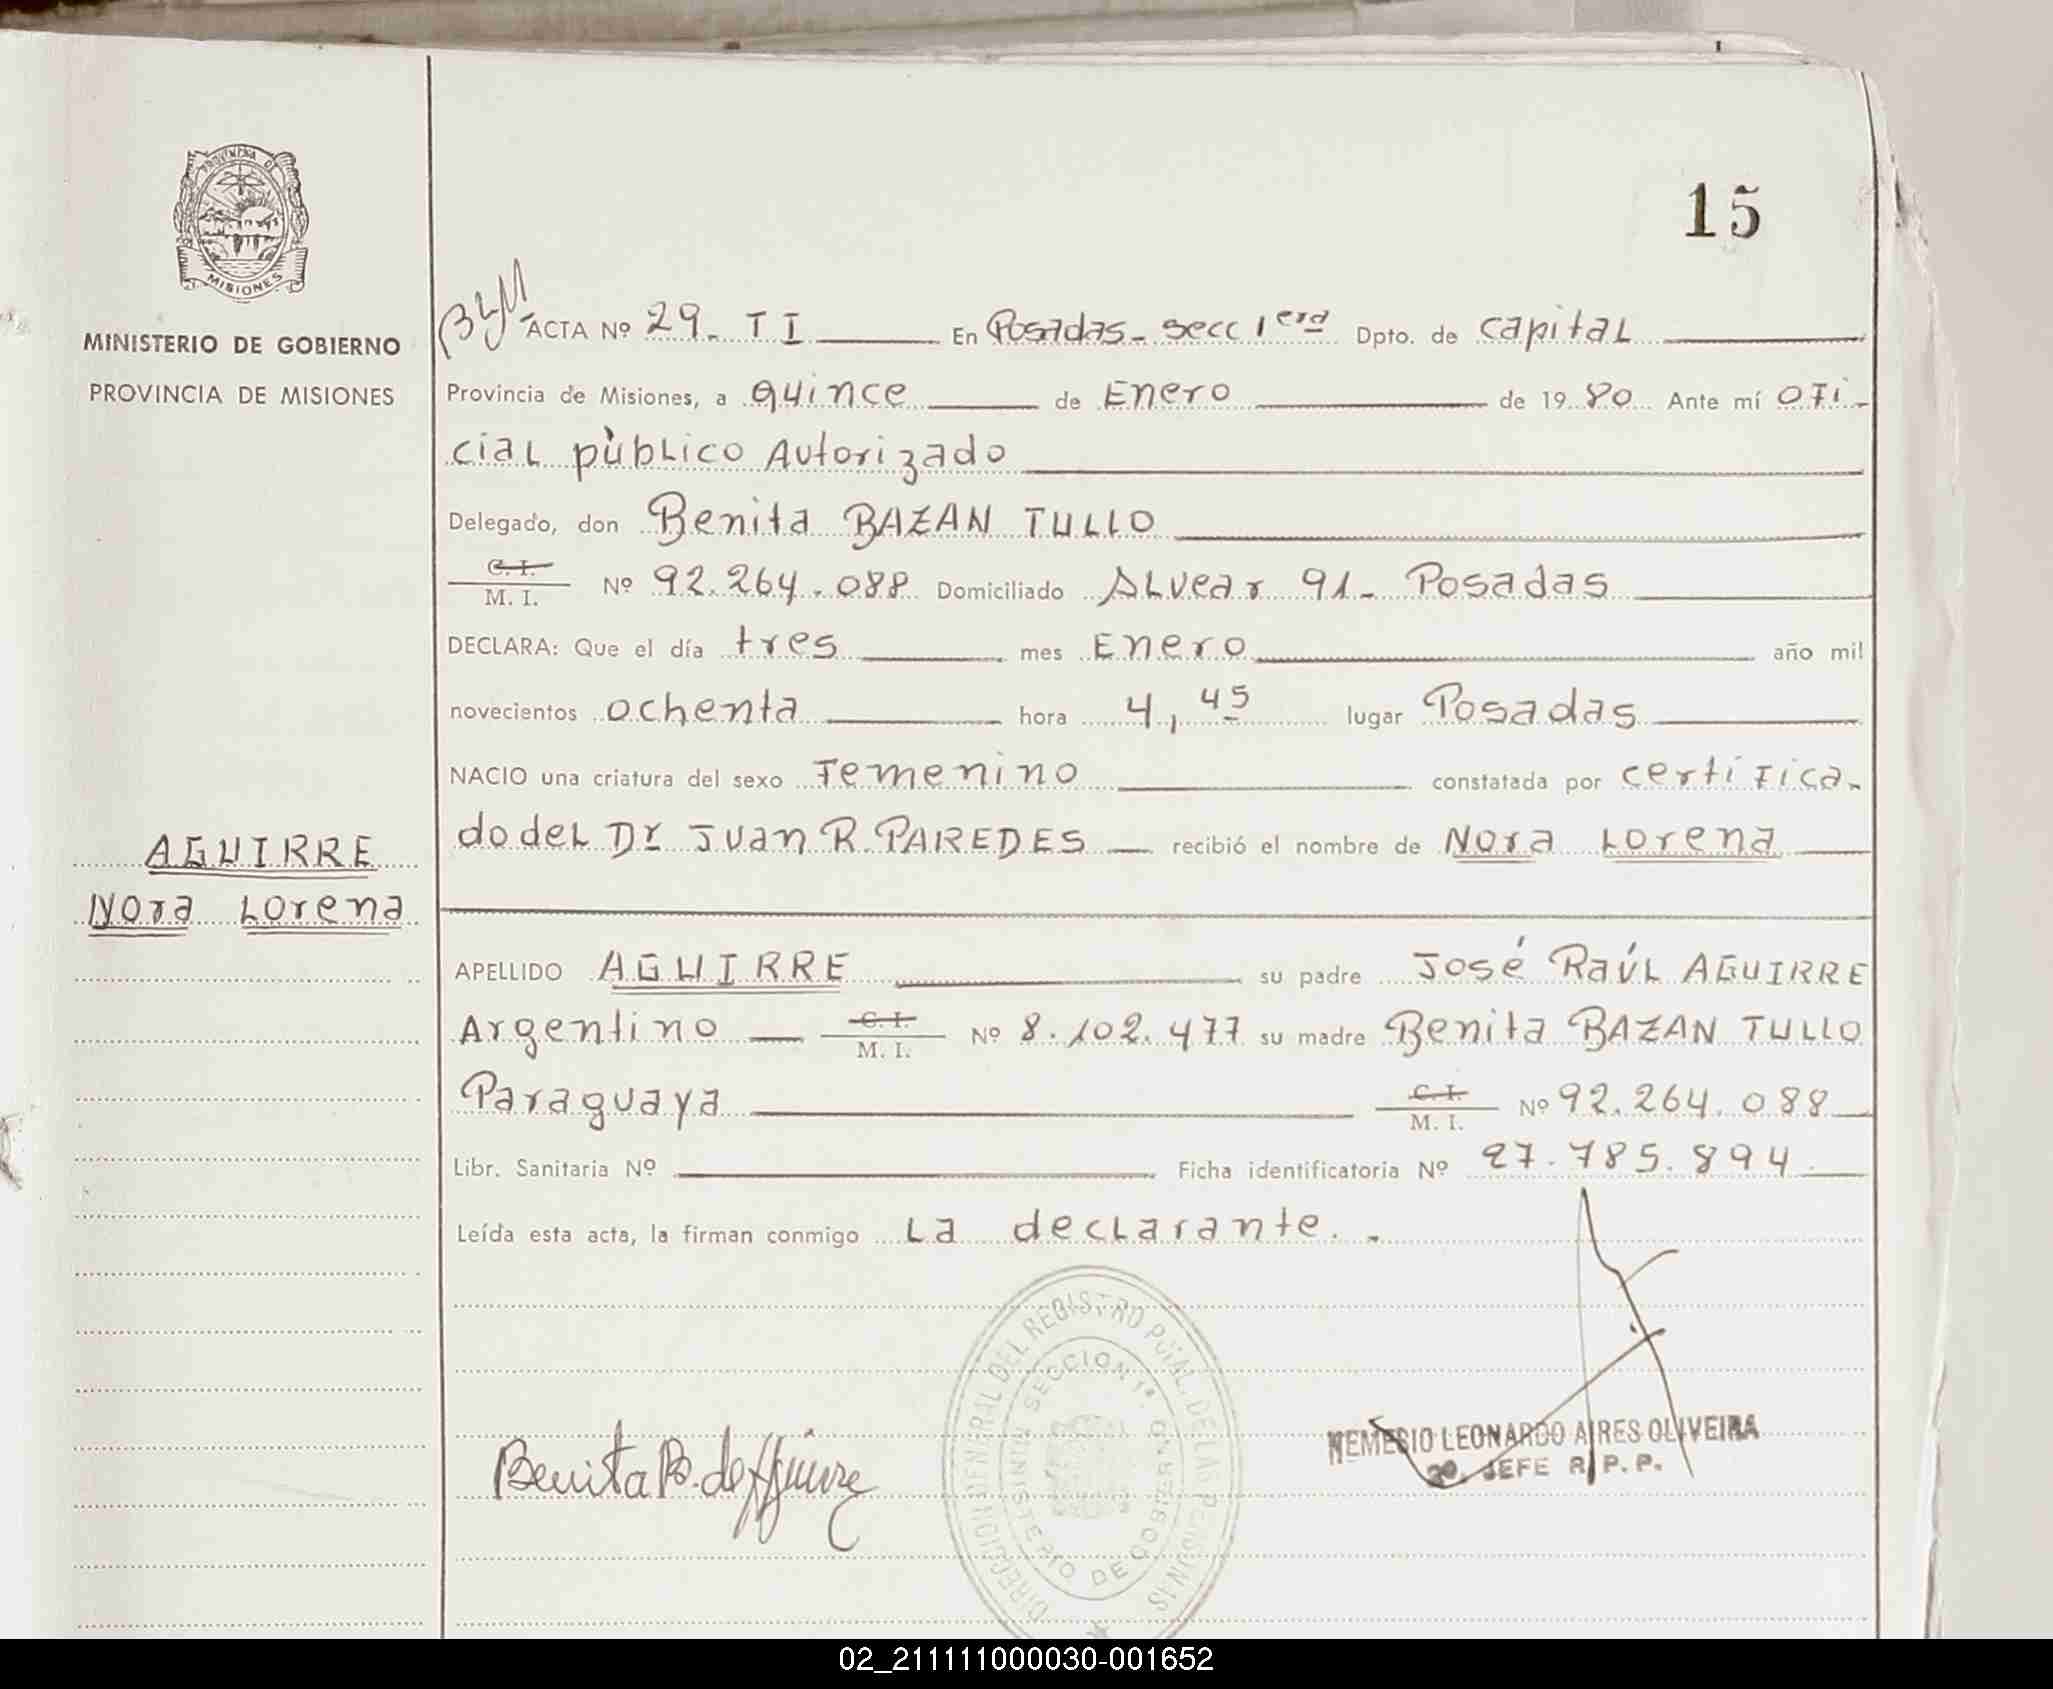 15
PROVINCIA DE
MISIONES
MINISTERIO DE GOBIERNO
PROVINCIA DE MISIONES
ACTA Nº 29. T I En Posadas - secc 1era Dpto. de capital
Provincia de Misiones, a quince de Enero de 1980 Ante mí ofi-
cial pùblico Autorizado
Delegado, don Benita BAZAN TULLO
C. I.
M. I. Nº 92.264.088 Domiciliado Alvear 91 - Posadas
DECLARA: Que el día tres mes Enero año mil
novecientos ochenta hora 4,45 lugar Posadas
NACIO una criatura del sexo Femenino constatada por certifica-
do del Dr Juan R. PAREDES recibió el nombre de Nora Lorena
AGUIRRE
Nora Lorena
APELLIDO AGUIRRE su padre José Raúl AGUIRRE
Argentino C. I.
M. I. Nº 8.102.477 su madre Benita BAZAN TULLO
Paraguaya C. I.
M. I. Nº 92.264.088
Libr. Sanitaria Nº Ficha identificatoria Nº 27.785.894
Leída esta acta, la firman conmigo La declarante. -
Benita B. de Aguirre
DIRECCION GENERAL DEL REGISTRO PCIAL. DE LAS PERSONAS
SECCION 1ª
MINISTERIO DE GOBIERNO
NEMESIO LEONARDO AIRES OLIVEIRA
JEFE R. P. P.
02_211111000030-001652